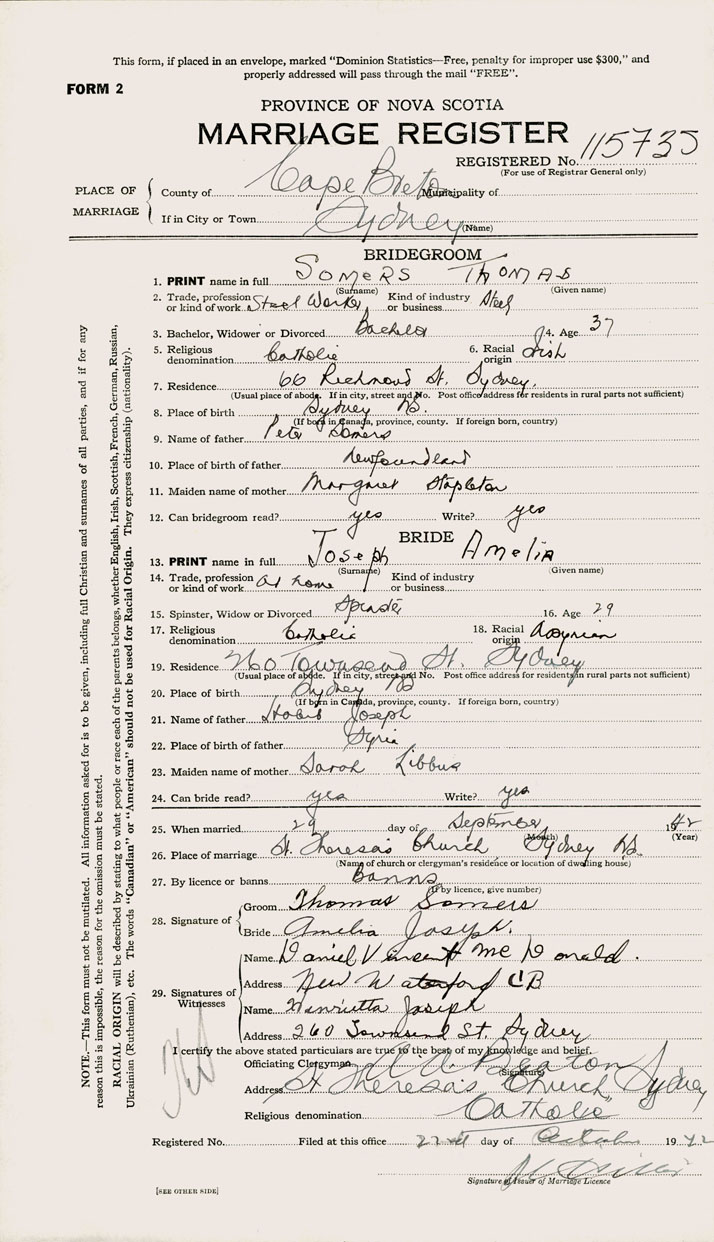 This form, if placed in an envelope, marked "Dominion Statistics—Free, penalty for improper use $300," and
properly addressed will pass through the mail "FREE".
FORM 2
PROVINCE OF NOVA SCOTIA
MARRIAGE REGISTER
REGISTERED No. 115735
(For use of Registrar General only)
PLACE OF MARRIAGE
County of Cape Breton Municipality of
If in City or Town Sydney (Name)
BRIDEGROOM
1. PRINT name in full SOMERS THOMAS
(Surname) (Given name)
2. Trade, profession or kind of work Steel Worker Kind of industry or business Steel
3. Bachelor, Widower or Divorced Bachelor 4. Age 37
5. Religious denomination Catholic 6. Racial origin Irish
7. Residence 66 Richmond St. Sydney.
(Usual place of abode. If in city, street and No. Post office address for residents in rural parts not sufficient)
8. Place of birth Sydney NS.
(If born in Canada, province, county. If foreign born, country)
9. Name of father Peter Somers
10. Place of birth of father Newfoundland
11. Maiden name of mother Margaret Stapleton
12. Can bridegroom read? yes Write? yes
BRIDE
13. PRINT name in full Joseph Amelia
(Surname) (Given name)
14. Trade, profession or kind of work At home Kind of industry or business
15. Spinster, Widow or Divorced Spinster 16. Age 29
17. Religious denomination Catholic 18. Racial origin Assyrian
19. Residence 260 Townsend St. Sydney
(Usual place of abode. If in city, street and No. Post office address for residents in rural parts not sufficient)
20. Place of birth Sydney NS
(If born in Canada, province, county. If foreign born, country)
21. Name of father Joseph
22. Place of birth of father Syria
23. Maiden name of mother Sarah Libbus
24. Can bride read? yes Write? yes
25. When married 29 day of September 1942
(Month) (Year)
26. Place of marriage St. Theresa's Church Sydney NS.
(Name of church or clergyman's residence or location of dwelling house)
27. By licence or banns Banns
(If by licence, give number)
28. Signature of
Groom Thomas Somers
Bride Amelia Joseph.
29. Signatures of Witnesses
Name Daniel Vincent McDonald.
Address New Waterford CB
Name Henrietta Joseph
Address 260 Townsend St. Sydney
I certify the above stated particulars are true to the best of my knowledge and belief.
Officiating Clergyman Beaton
(Signature)
Address St Theresa's Church Sydney
Religious denomination Catholic
Registered No. Filed at this office 22nd day of October 1942
Signature of Issuer of Marriage Licence
[SEE OTHER SIDE]
NOTE.—This form must not be mutilated. All information asked for is to be given, including full Christian and surnames of all parties, and if for any
reason this is impossible, the reason for the omission must be stated.
RACIAL ORIGIN will be described by stating to what people or race each of the parents belongs, whether English, Irish, Scottish, French, German, Russian,
Ukrainian (Ruthenian), etc. The words "Canadian" or "American" should not be used for Racial Origin. They express citizenship (nationality).